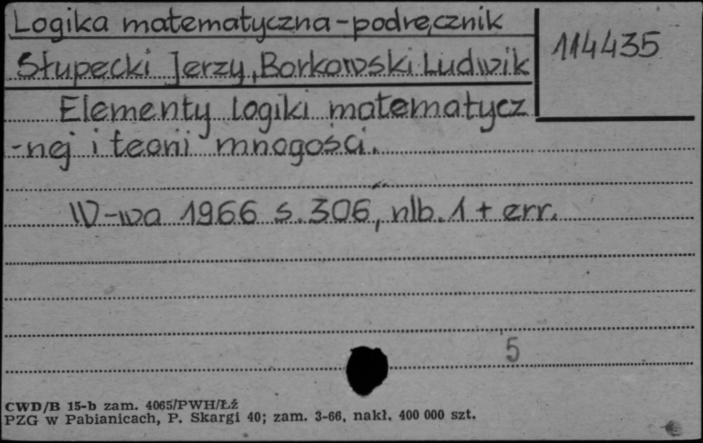 Logika matematyczna-podręcznik
114435
Słupecki Jerzy, Borkowski Ludwik
Elementy logiki matematycz
-nej i teorii mnogości.
W-wa 1966 s. 306, nlb. 1 + err.
5
CWD/B 15-b zam. 4065/PWH/Łź
PZG w Pabianicach, P. Skargi 40; zam. 3-66, nakł. 400 000 szt.